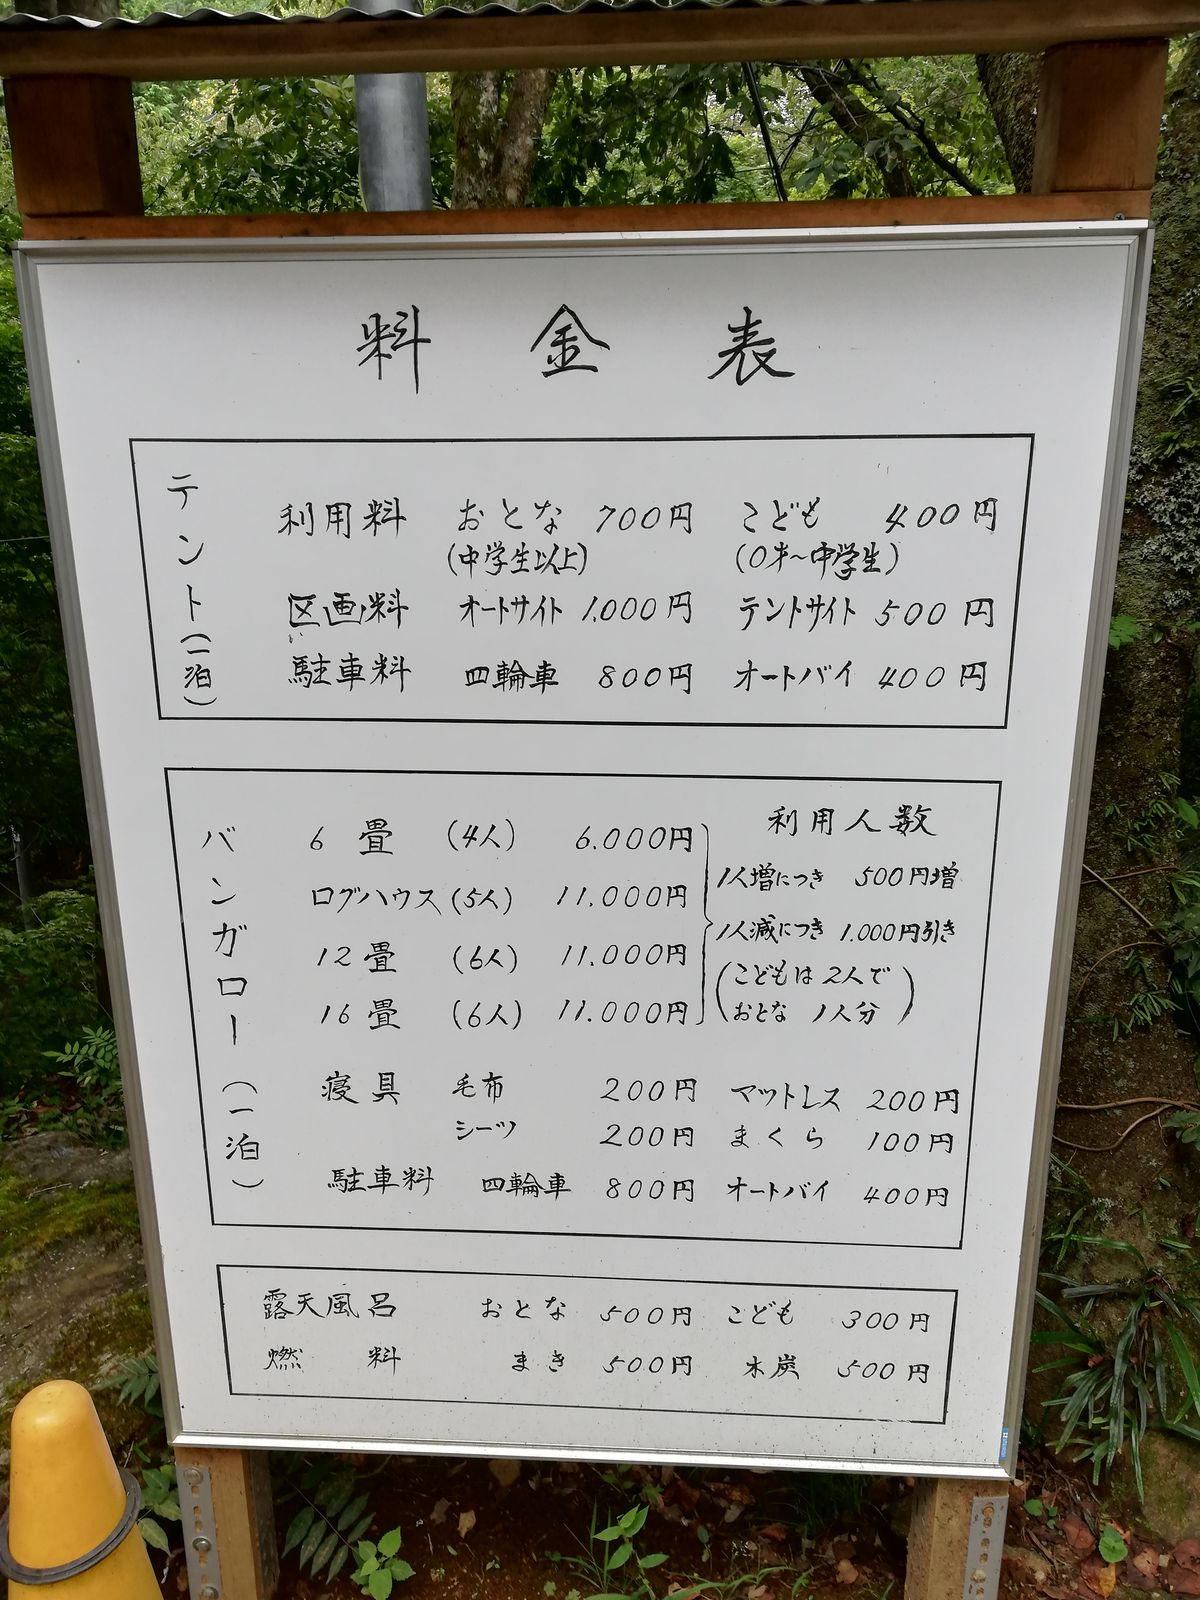 料金表
テント(一泊)
利用料 おとな 700円 こども 400円
(中学生以上) (0才~中学生)
区画料 オートサイト 1.000円 テントサイト 500円
駐車料 四輪車 800円 オートバイ 400円
バンガロー(一泊)
6畳 (4人) 6.000円
ログハウス (5人) 11.000円
12畳 (6人) 11.000円
16畳 (6人) 11.000円
利用人数
1人増につき 500円増
1人減につき 1.000円引き
(こどもは2人で
おとな 1人分)
寝具 毛布 200円 マットレス 200円
シーツ 200円 まくら 100円
駐車料 四輪車 800円 オートバイ 400円
露天風呂 おとな 500円 こども 300円
燃料 まき 500円 木炭 500円